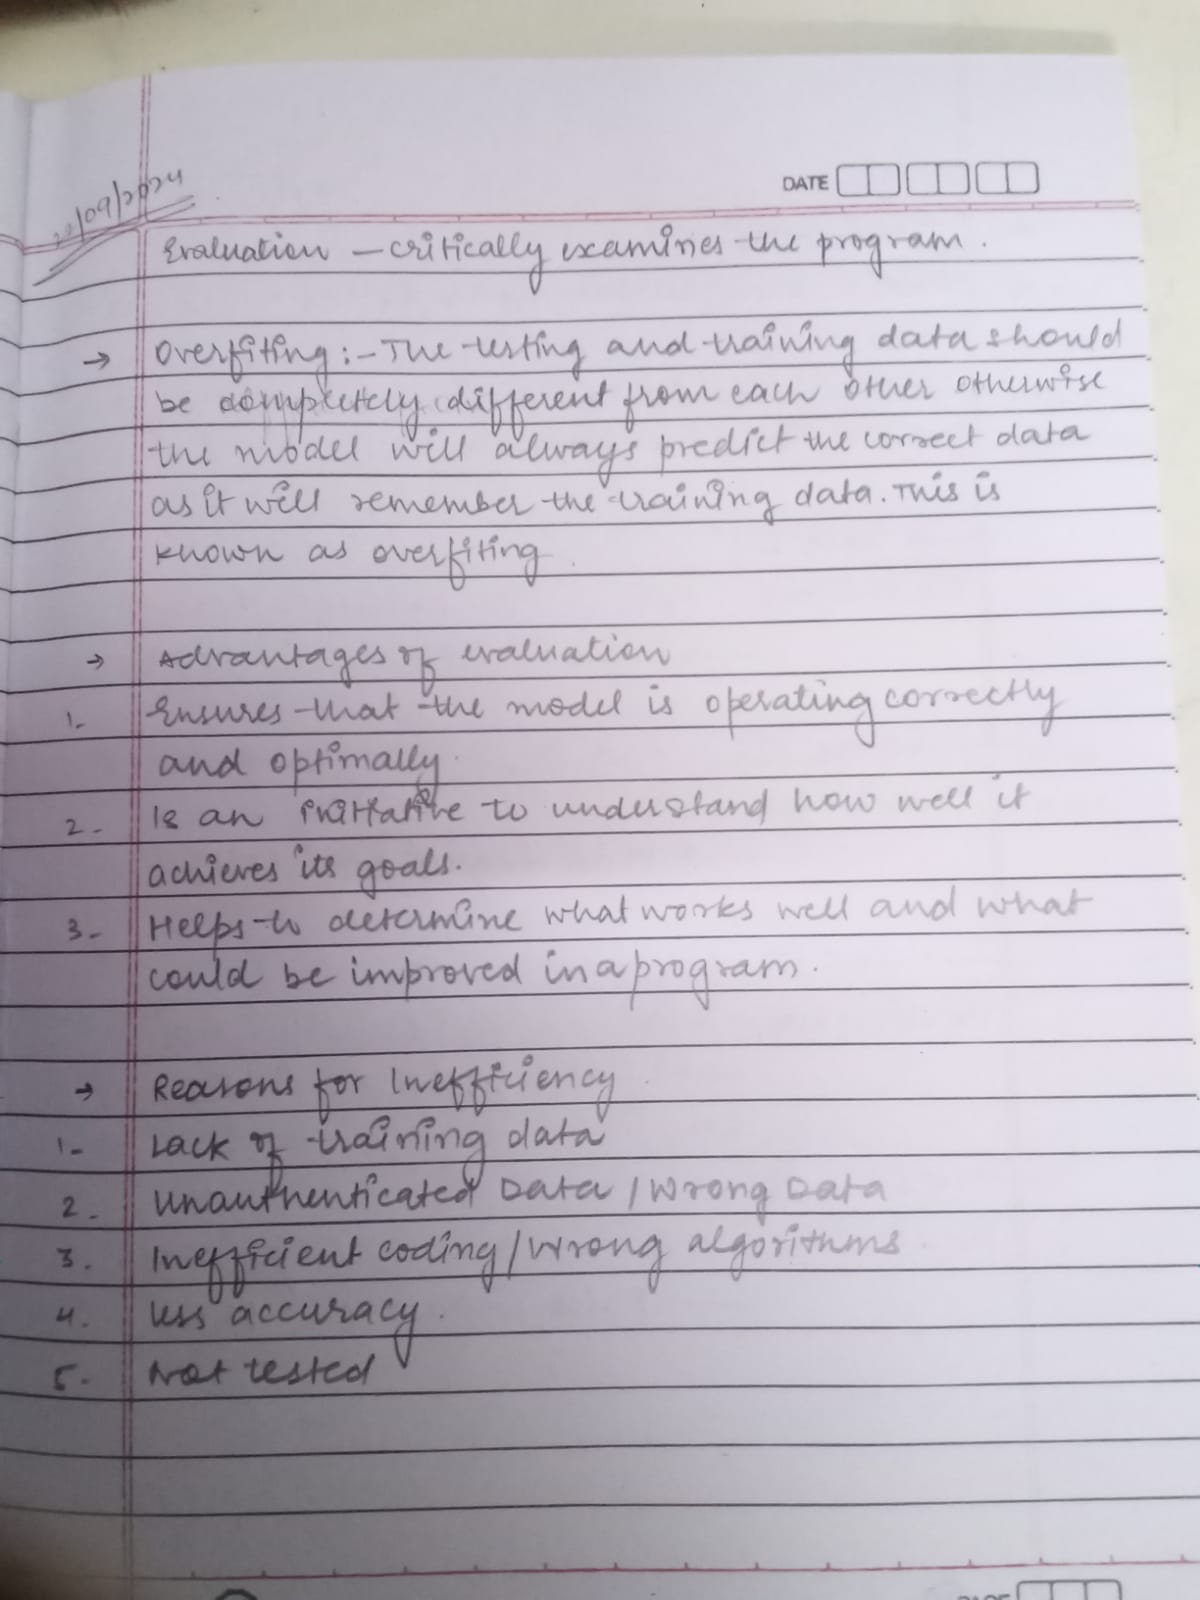 /09/2024
DATE
Evaluation - critically examines the program.
→ Overfiting :- The testing and training data should
be completely different from each other otherwise
the model will always predict the correct data
as it will remember the training data. This is
known as overfiting
→ Advantages of evaluation
1- Ensures that the model is operating correctly
and optimally.
2- Is an initiative to understand how well it
achieves its goals.
3- Helps to determine what works well and what
could be improved in a program.
→ Reasons for Inefficiency
1- Lack of training data
2. Unauthenticated Data / Wrong Data
3. Inefficient coding / Wrong algorithms
4. Less accuracy.
5. Not tested